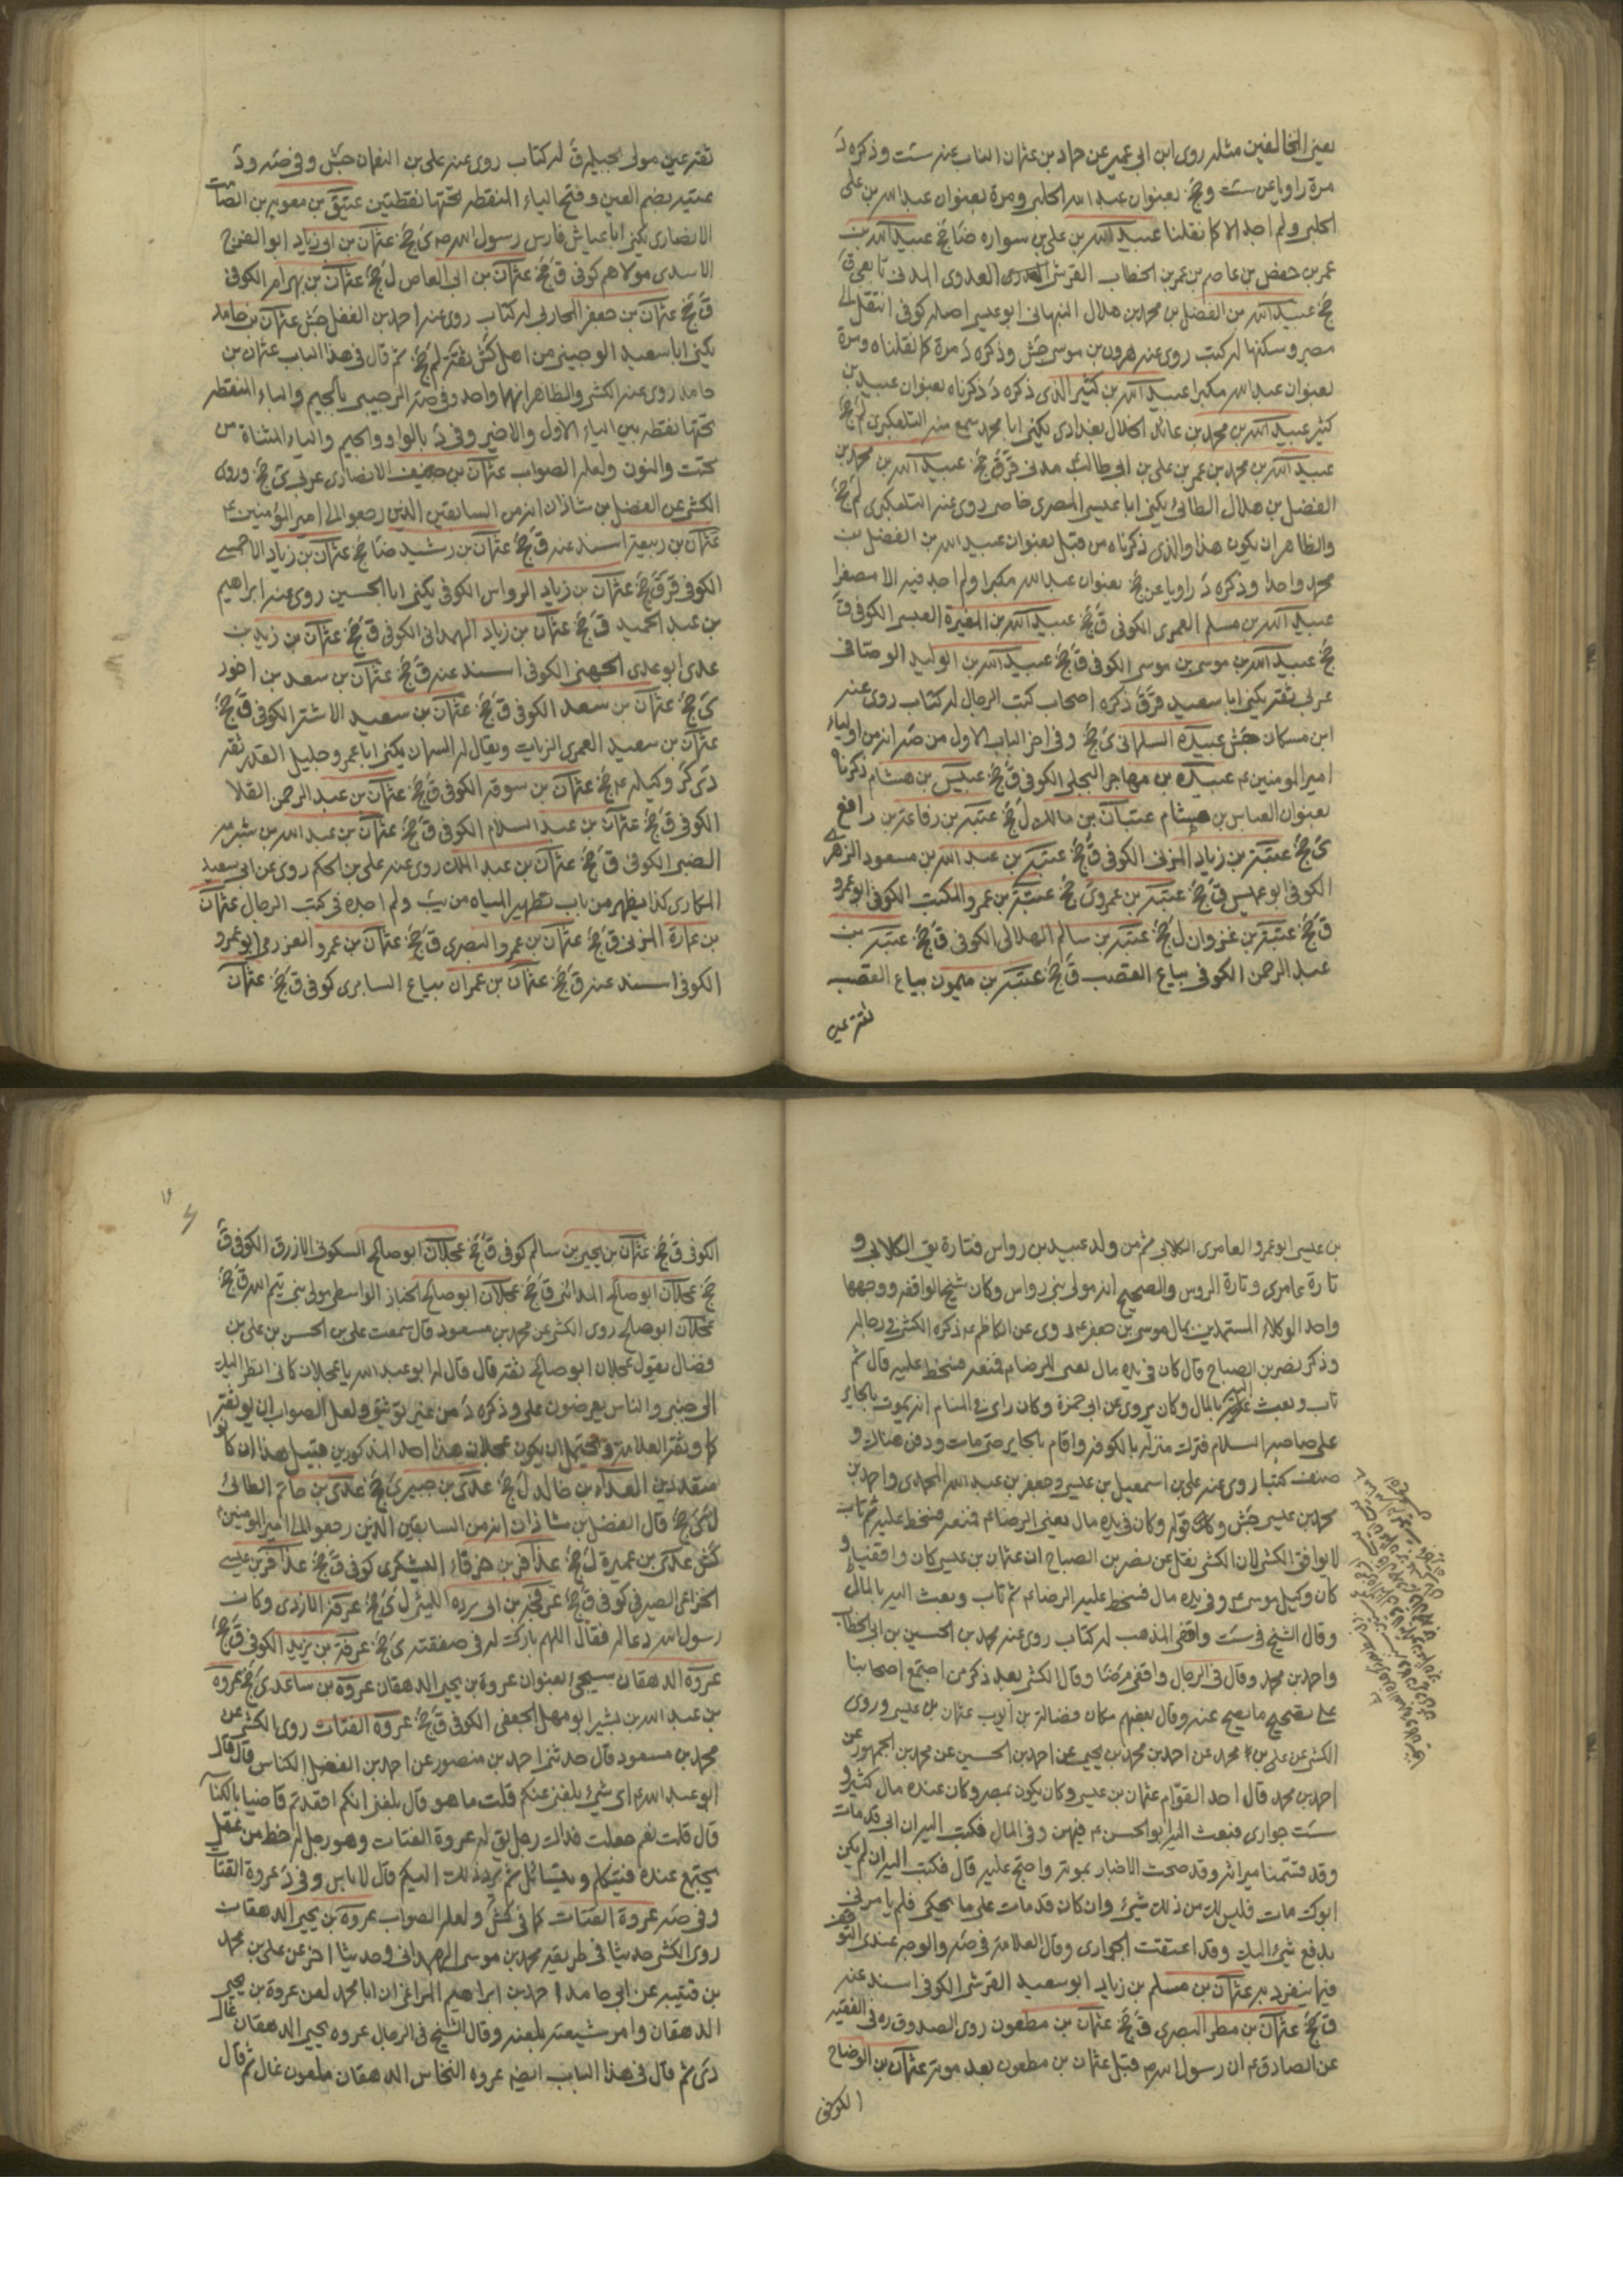 يعنى المخالفين مثله روى ابن ابى عمير عن حماد بن عثمان الناب عنه ست وذكره دَ
مرة راويا عن ست وجخ بعنوان عبد الله الحلبى ومرة بعنوان عبد الله بن على
الحلبى ولم اجد الا كما نقلنا عبيد الله بن على بن سواره ضا جخ عبيد الله بن
عمر بن حفص بن عاصم بن عمر بن الخطاب القرشى العدوى المدنى تابعى ق
جخ عبيد الله بن الفضل بن محمد بن هلال النبهانى ابو عيسى اصله كوفى انتقل الى
مصر وسكنها له كتب روى عنه هرون بن موسى جش وذكره دَ مرة كما نقلناه ومرة
بعنوان عبد الله مكبرا عبيد الله بن كثير الذى ذكره دَ ذكرناه بعنوان عبيد بن
كثير عبيد الله بن محمد بن عائذ الخلال بغدادى يكنى ابا محمد سمع منه التلعكبرى لم جخ
عبيد الله بن محمد بن عمر بن على بن ابى طالب مدنى قر ق جخ عبيد الله بن محمد بن
الفضل بن هلال الطائى يكنى ابا عيسى المصرى خاصى روى عنه التلعكبرى لم جخ
والظاهر ان يكون هذا والذى ذكرناه من قبل بعنوان عبيد الله بن الفضل بن
محمد واحدا وذكره دَ راويا عن جخ بعنوان عبد الله مكبرا ولم اجد فيه الا مصغرا
عبيد الله بن مسلم العمرى الكوفى ق جخ عبيد الله بن المغيرة العبسى الكوفى ق
جخ عبيد الله بن موسى بن موسى الكوفى ق جخ عبيد الله بن الوليد الوصافى
عربى ثقة يكنى ابا سعيد قر ق ذكره اصحاب كتب الرجال له كتاب روى عنه
ابن مسكان جش عبيدة السلمانى ى جخ وفى اخر الباب الاول من صه انه من اولياء
امير المؤمنين ع عبيدة بن مهاجر البجلى الكوفى ق جخ عبيس بن هشام ذكرناه
بعنوان العباس بن هشام عتبان بن مالك ل جخ عتبة بن رفاعة بن رافع
ى جخ عتبة بن زياد المزنى الكوفى ق جخ عتبة بن عبد الله بن مسعود الزهرى
الكوفى ابو عميس ق جخ عتبة بن عمرو ى جخ عتبة بن عمرو المكتب الكوفى ابو عمرو
ق جخ عتبة بن غزوان ل جخ عتيبة بن سالم الهلالى الكوفى ق جخ عتيبة بن
عبد الرحمن الكوفى بياع القصب ق جخ عتيبة بن ميمون بياع القصب
ثقة عين
ثقة عين مولى بجيلة ق له كتاب روى عنه على بن النعمان جش وفى صه ود
عتيبة بضم العين وفتح الياء المنقطه تحتها نقطتين عتيق بن معوية بن الصامت
الانصارى يكنى ابا عياش فارس رسول الله ص ى جخ عثمان بن ابى زياد ابو الفرج
الاسدى مولاهم كوفى ق جخ عثمان بن ابى العاص ل جخ عثمان بن بهرام الكوفى
ق جخ عثمان بن جعفر المحاربى له كتاب روى عنه احمد بن الفضل جش عثمان بن حامد
يكنى ابا سعيد الوجينى من اهل كش ثقة لم جخ ثم قال فى هذا الباب عثمان بن
حامد روى عنه الكشى والظاهر انهما واحد وفى صه الرجيبى بالجيم والباء المنقطه
تحتها نقطه بين الياء الاول والاخير وفى دَ بالواو والجيم والياء المثناة من
تحت والنون ولعله الصواب عثمان بن حنيف الانصارى عربى ى جخ وروى
الكشى عن الفضل بن شاذان انه من السابقين الذين رجعوا الى امير المؤمنين ع
عثمان بن ربيعة اسند عنه ق جخ عثمان بن رشيد ضا جخ عثمان بن زياد الاحمسى
الكوفى قر ق جخ عثمان بن زياد الرواس الكوفى يكنى ابا الحسين روى عنه ابراهيم
بن عبد الحميد ق جخ عثمان بن زياد الهمدانى الكوفى ق جخ عثمان بن زيد بن
عدى ابو عدى الجهنى الكوفى اسند عنه ق جخ عثمان بن سعد بن احور
ى جخ عثمان بن سعد الكوفى ق جخ عثمان بن سعيد الاشتر الكوفى ق جخ
عثمان بن سعيد العمرى الزيات ويقال له السمان يكنى ابا عمرو جليل القدر ثقه
دى كر وكيله ع جخ عثمان بن سوقه الكوفى ق جخ عثمان بن عبد الرحمن القلا
الكوفى ق جخ عثمان بن عبد السلام الكوفى ق جخ عثمان بن عبد الله بن شبرمه
الضبى الكوفى ق جخ عثمان بن عبد الملك روى عنه على بن الحكم روى عن ابى سعيد
المكارى كذا يظهر من باب تطهير المياه من يب ولم اجده فى كتب الرجال عثمان
بن عمارة المزنى ق جخ عثمان بن عمرو البصرى ق جخ عثمان بن عمرو العزرمى ابو عمرو
الكوفى اسند عنه ق جخ عثمان بن عمران بياع السابرى كوفى ق جخ عثمان
بن عيسى ابو عمرو العامرى الكلابى ثم من ولد عبيد بن رواس فتارة يق الكلابى و
تارة عامرى وتارة الروس والصحيح انه مولى بنى رواس وكان شيخ الواقفه ووجهها
واحد الوكلاء المستبدين بمال موسى بن جعفر ع روى عن الكاظم ع ذكره الكشى فى رجاله
وذكر نصر بن الصباح قال كان فى يده مال يعنى للرضا ع فمنعه فسخط عليه قال ثم
تاب وبعث اليه بالمال وكان يروى عن ابى حمزة وكان راى فى المنام انه يموت بالحائر
على صاحبه السلام فترك منزله بالكوفه واقام بالحاير حتى مات ودفن هناك و
صنف كتبا روى عنه على بن اسمعيل بن عيسى وجعفر بن عبد الله المحمدى واحمد بن
محمد بن عيسى جش وكان قوله وكان فى يده مال يعنى الرضا ع فمنعه فسخط عليه ثم تاب
لا يوافق الكشى لان الكشى نقل عن نصر بن الصباح ان عثمان بن عيسى كان واقفيا و
كان وكيل موسى ع وفى يده مال فسخط عليه الرضا ع ثم تاب وبعث اليه بالمال
وقال الشيخ فى ست واقفى المذهب له كتاب روى عنه محمد بن الحسين بن ابى الخطاب
واحمد بن محمد وقال فى الرجال واقفى م ضا وقال الكشى بعد ذكر من اجتمع اصحابنا
على تصحيح ما يصح عنه وقال بعضهم مكان فضالة بن ايوب عثمان بن عيسى وروى
الكشى عن على بن محمد عن احمد بن محمد بن يحيى عن احمد بن الحسين عن محمد بن الجمهور عن
احمد بن محمد قال احد القوام عثمان بن عيسى وكان يكون بمصر وكان عنده مال كثير و
ست جوارى فبعث اليه ابو الحسن ع فيهن وفى المال فكتب اليه ان ابى قد مات
وقد قسمنا ميراثه وقد صحت الاخبار بموته واحتج عليه قال فكتب اليه ان لم يكن
ابوك مات فليس لك من ذلك شئ وان كان قد مات على ما يحكى فلم يامرنى
بدفع شئ اليك وقد اعتقت الجوارى وقال العلامة فى صه والوجه عندى التوقف
فيما ينفرد به عثمان بن مسلم بن زياد ابو سعيد القرشى الكوفى اسند عنه
ق جخ عثمان بن مطر البصرى ق جخ عثمان بن مظعون روى الصدوق ره فى الفقيه
عن الصادق ع ان رسول الله ص قبل عثمان بن مظعون بعد موته عثمان بن الوضاح
الكوفى
الكوفى ق جخ عثمان بن يحيى بن سالم كوفى ق جخ عجلان ابو صالح السكونى الازرق الكوفى ق
جخ عجلان ابو صالح المدائنى ق جخ عجلان ابو صالح الخباز الواسطى مولى بنى تيم الله ق جخ
عجلان ابو صالح روى الكشى عن محمد بن مسعود قال سمعت على بن الحسن بن على بن
فضال يقول عجلان ابو صالح ثقه قال قال له ابو عبد الله يا عجلان كانى انظر اليك
الى جنبى والناس يعرضون على وذكره دَ من غير توثيق ولعل الصواب ان يوثقه
كما وثقه العلامة ويحتمل ان يكون عجلان هذا احد المذكورين قبيل هذا ان كانوا
متعددين العداء بن خالد ل جخ عدى بن حبيب ى جخ عدى بن حاتم الطائى
ل ى جخ قال الفضل بن شاذان انه من السابقين الذين رجعوا الى امير المؤمنين ع
كش عدى بن عميرة ل جخ عذافر بن خرقاء اليشكرى كوفى ق جخ عذافر بن عيسى
الخزاعى الصيرفى كوفى ق جخ عرفجة بن ابى برده الليثى ل ى جخ عرفة الازدى وكان
رسول الله دعا له فقال اللهم بارك له فى صفقته ى جخ عرفة بن يزيد الكوفى ق جخ
عروه الدهقان سيجئ بعنوان عروة بن يحيى الدهقان عروة بن ساعد ى جخ عروه
بن عبد الله بن بشير ابو مهل الجعفى الكوفى ق جخ عروة القتات روى الكشى عن
محمد بن مسعود قال حدثنى احمد بن منصور عن احمد بن الفضل الكناسى قال قال
ابو عبد الله ع اى شئ بلغنى عنكم قلت ما هو قال بلغنى انكم اقعدتم قاضيا بالكناسة
قال قلت نعم جعلت فداك رجل يق له عروة القتات وهو رجل له حظ من عقل
يجتمع عنده فنتكلم ونتسائل ثم يرد ذلك اليكم قال لا باس وفى دَ عروة القتات
وفى صه عروة القتات كما فى كش ولعله الصواب عروة بن يحيى الدهقان
روى الكشى حديثا فى طريقه محمد بن موسى الهمدانى وحديثا اخر عن على بن محمد
بن قتيبه عن ابى حامد احمد بن ابراهيم المراغى ان ابا محمد لعن عروة بن يحيى
الدهقان وامر شيعته بلعنه وقال الشيخ فى الرجال عروه بن يحيى الدهقان غال
دى ثم قال فى هذا الباب ايضا عروه النخاس الدهقان ملعون غال ثم قال